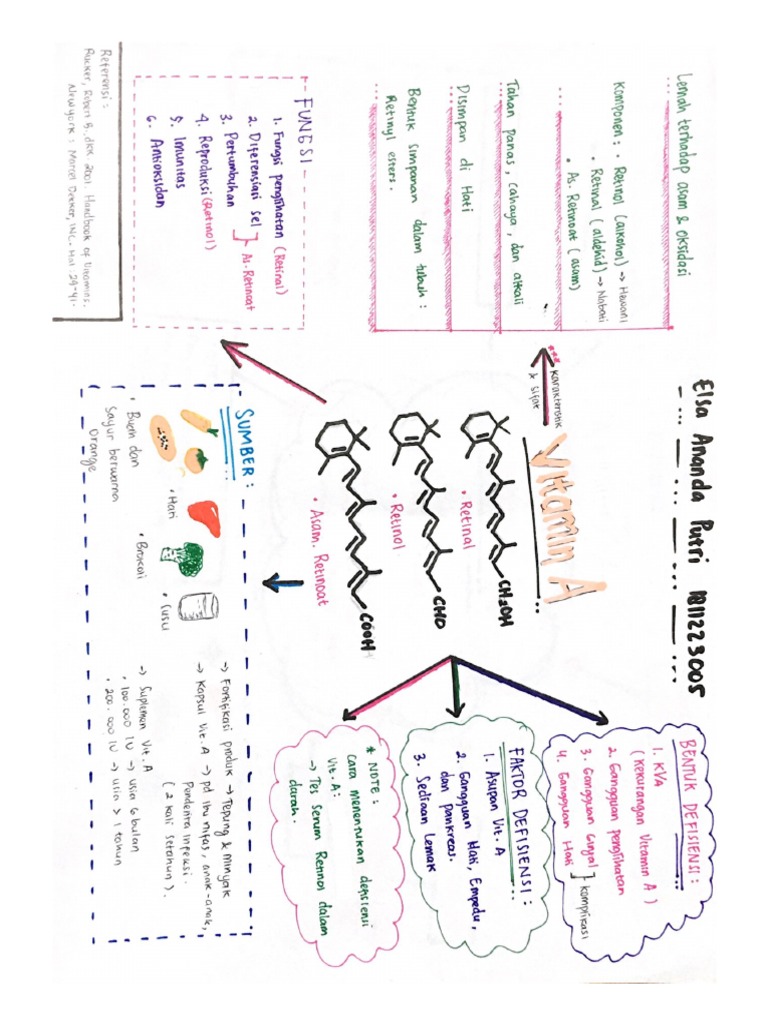 Elsa Ananda Putri 1811223005
Vitamin A
karakteristik
& sifat
Lemah terhadap asam & oksidasi
Komponen : • Retinol (alkohol) → Hewani
• Retinal (aldehid) → Nabati
• As. Retinoat (asam)
Tahan panas, cahaya, dan alkali
Disimpan di Hati
Bentuk simpanan dalam tubuh :
Retinyl esters.
CH2OH
• Retinal
CHO
• Retinol
COOH
• Asam. Retinoat
BENTUK DEFISIENSI :
1. KVA
(Kekurangan Vitamin A)
2. Gangguan penglihatan
3. Gangguan Ginjal
4. Gangguan Hati } komplikasi
FAKTOR DEFISIENSI :
1. Asupan Vit. A
2. Gangguan Hati, Empedu,
dan pankreas.
3. Sediaan Lemak
* NOTE :
Cara menentukan defisiensi
Vit. A :
→ Tes Serum Retinol dalam
darah.
FUNGSI
1. Fungsi penglihatan (Retinal)
2. Diferensiasi sel
3. Pertumbuhan } As. Retinoat
4. Reproduksi (Retinol)
5. Imunitas
6. Antioksidan
SUMBER :
• Hati
• Brokoli
• Susu
• Buah dan
Sayur berwarna
Orange
→ Fortifikasi produk → Tepung & minyak
→ Kapsul Vit. A → pd ibu nifas, anak-anak,
Penderita infeksi.
(2 kali setahun).
→ Suplemen Vit. A
• 100.000 IU → usia 6 bulan
• 200.000 IU → usia > 1 tahun
Referensi :
Rukker, Robert B, dkk. 2001. Handbook of Vitamins.
Newyork : Marcel Dekker, INC. Hal 29-41.